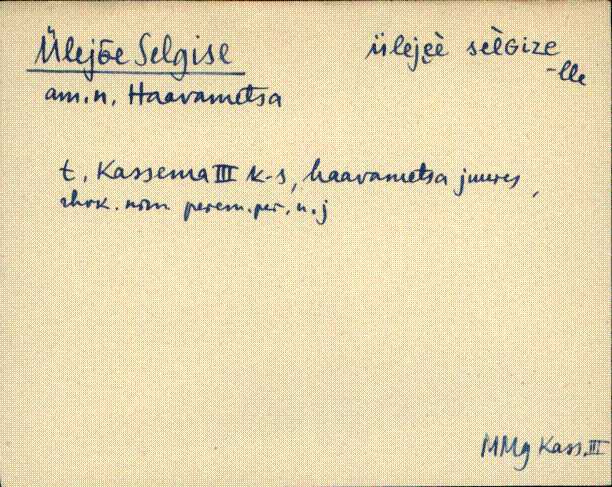 Ülejõe Selgise üleje̮è sèlGize
-lle
am.n. Haavametsa
t. Kassema III k-s, haavametsa juures,
nim perem. per. n. j
MMg Kass. III